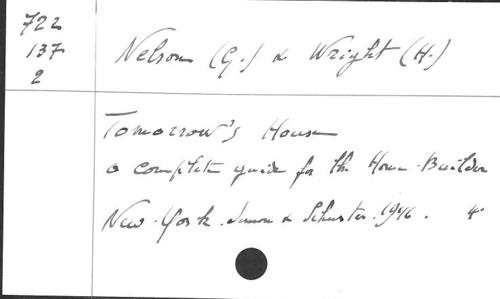 722
137
2
Nelson (G.) & Wright (H.)
Tomorrow's House
a complete guide for the Home-Builder
New-York. Simon & Schuster. 1946. 4°